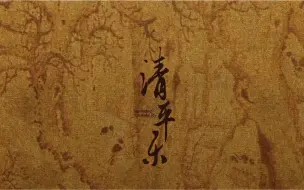 清平乐